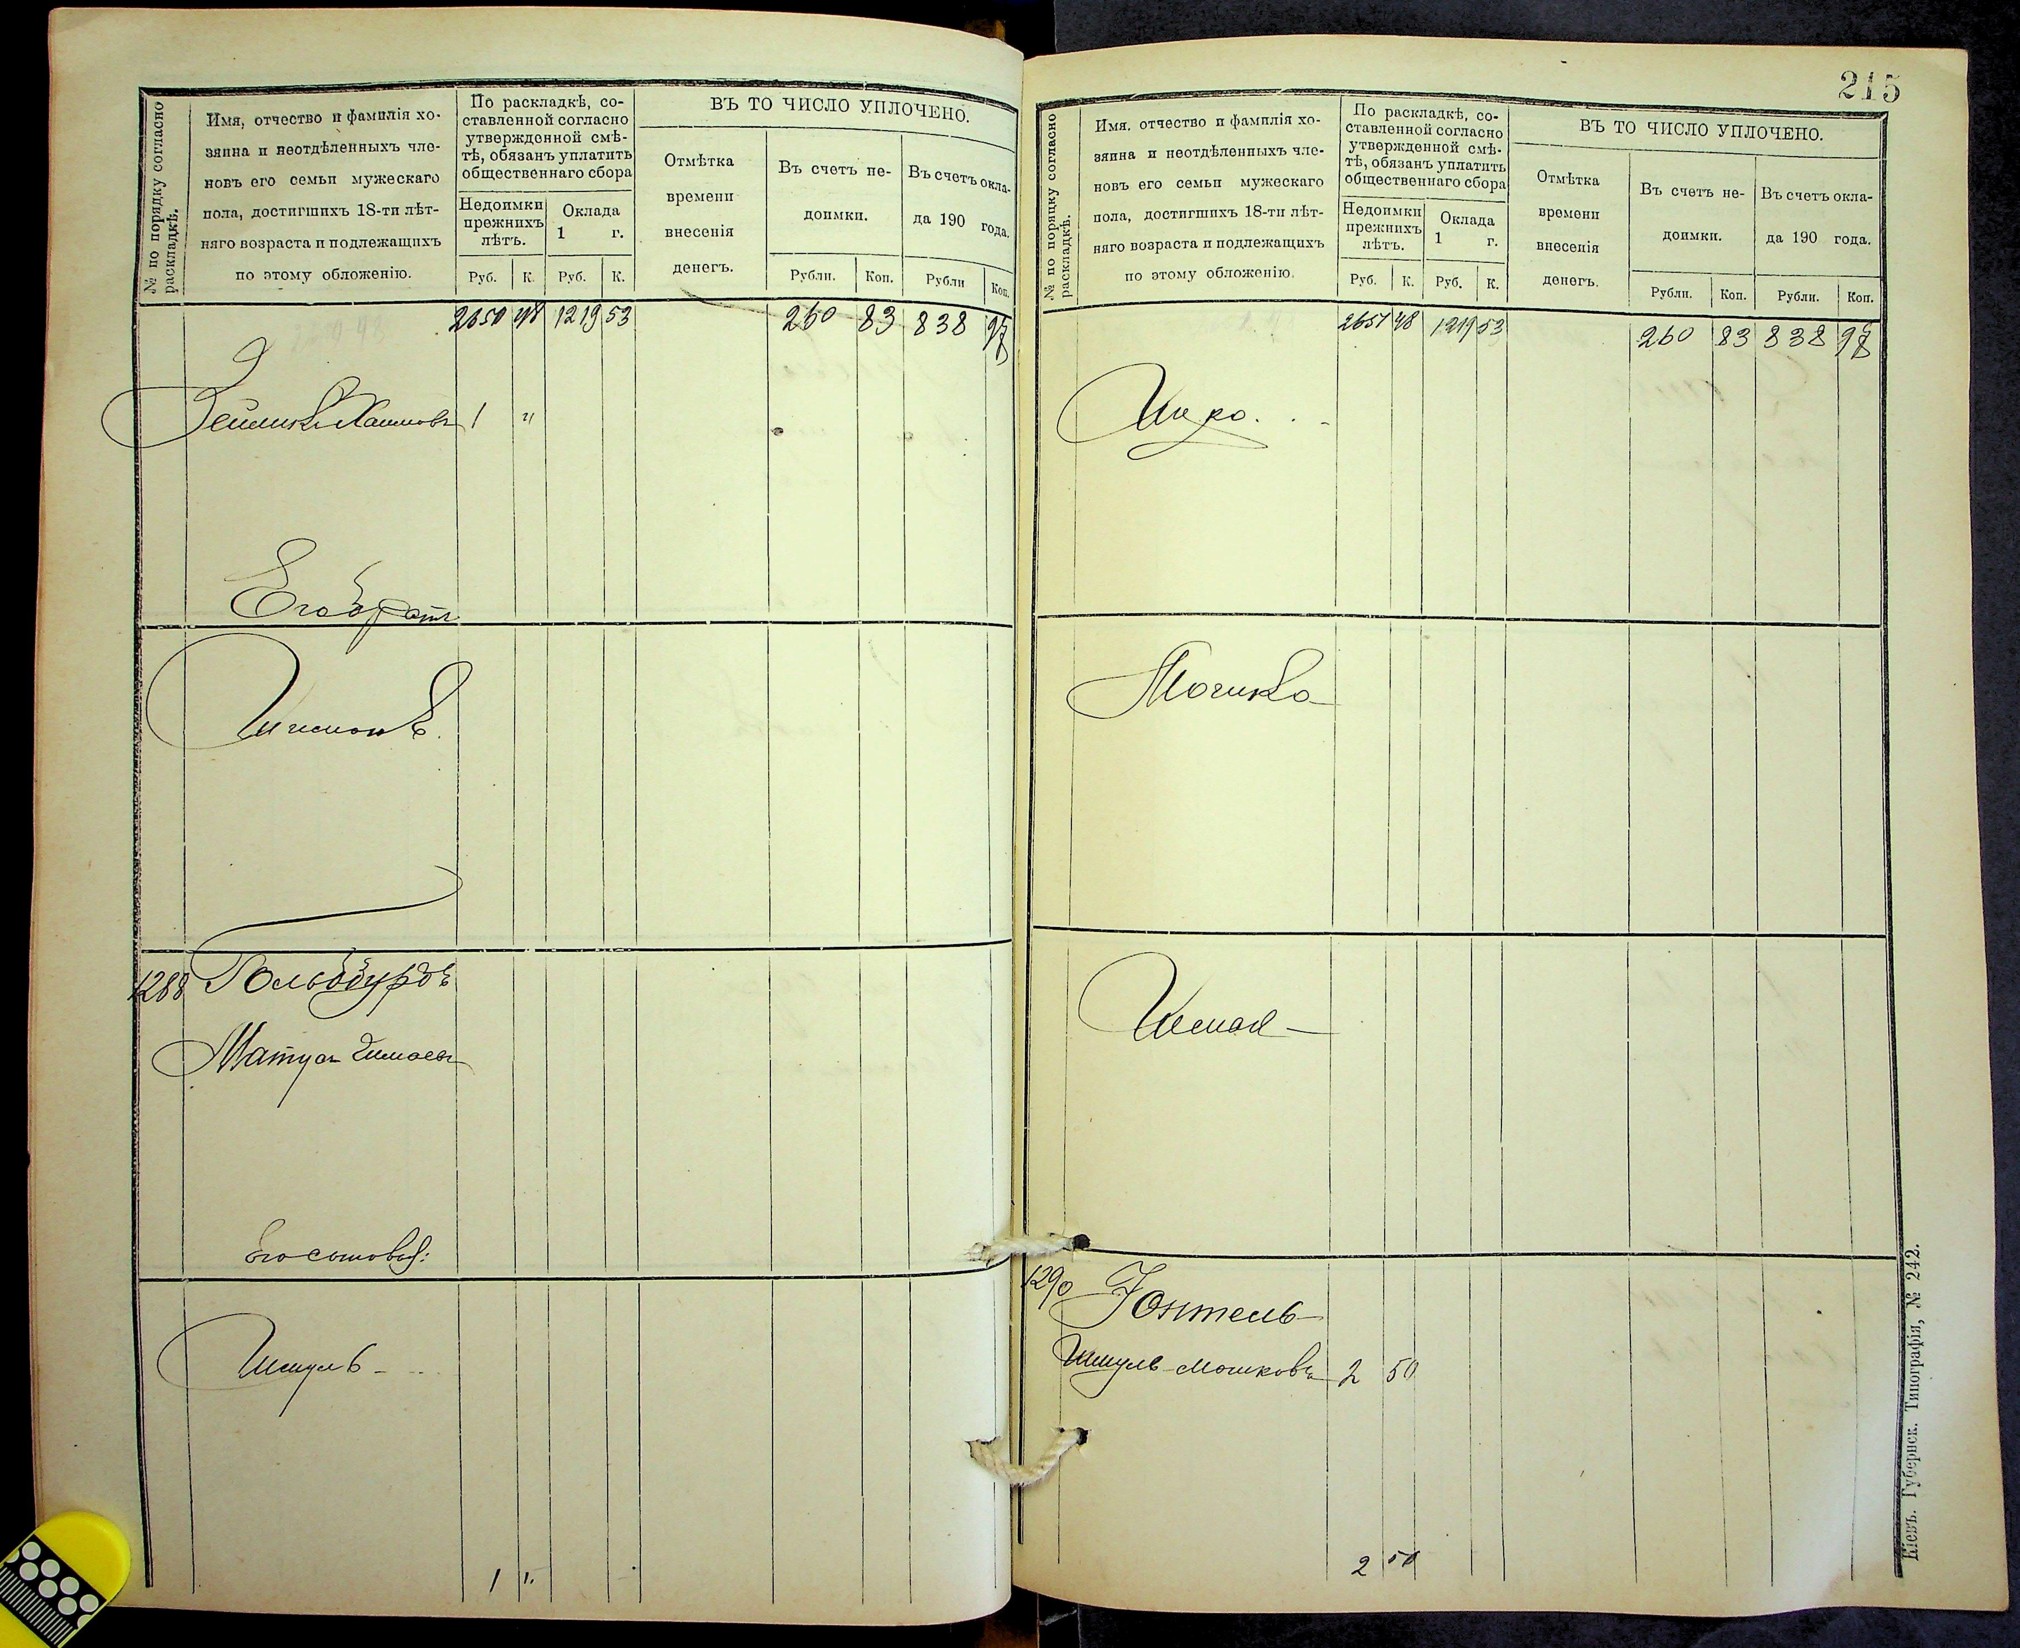 № по порядку согласно
раскладкѣ.
Имя, отчество и фамилія хо-
зяина и неотдѣленныхъ чле-
новъ его семьи мужескаго
пола, достигшихъ 18-ти лѣт-
няго возраста и подлежащихъ
по этому обложенію.
По раскладкѣ, со-
ставленной согласно
утвержденной смѣ-
тѣ, обязанъ уплатить
общественнаго сбора
Недоимки
прежнихъ
лѣтъ.
Оклада
1 г.
Руб. К. Руб. К.
ВЪ ТО ЧИСЛО УПЛОЧЕНО.
Отмѣтка
времени
внесенія
денегъ.
Въ счетъ не-
доимки.
Въ счетъ окла-
да 190 года.
Рубли. Коп. Рубли Коп.
2650 48 1219 53 260 83 838 97
Хаимовъ 1 "
Его братъ
1288
Матусъ
Его сыновья:
Шмуль
1 "
215
№ по порядку согласно
раскладкѣ.
Имя, отчество и фамилія хо-
зяина и неотдѣленныхъ чле-
новъ его семьи мужескаго
пола, достигшихъ 18-ти лѣт-
няго возраста и подлежащихъ
по этому обложенію.
По раскладкѣ, со-
ставленной согласно
утвержденной смѣ-
тѣ, обязанъ уплатить
общественнаго сбора
Недоимки
прежнихъ
лѣтъ.
Оклада
1 г.
Руб. К. Руб. К.
ВЪ ТО ЧИСЛО УПЛОЧЕНО.
Отмѣтка
времени
внесенія
денегъ.
Въ счетъ не-
доимки.
Въ счетъ окла-
да 190 года.
Рубли. Коп. Рубли. Коп.
2651 48 1219 53 260 83 838 97
Мошко
1290
Шмуль Мошковъ 2 50
2 50
Кіевъ. Губернск. Типографія, № 242.